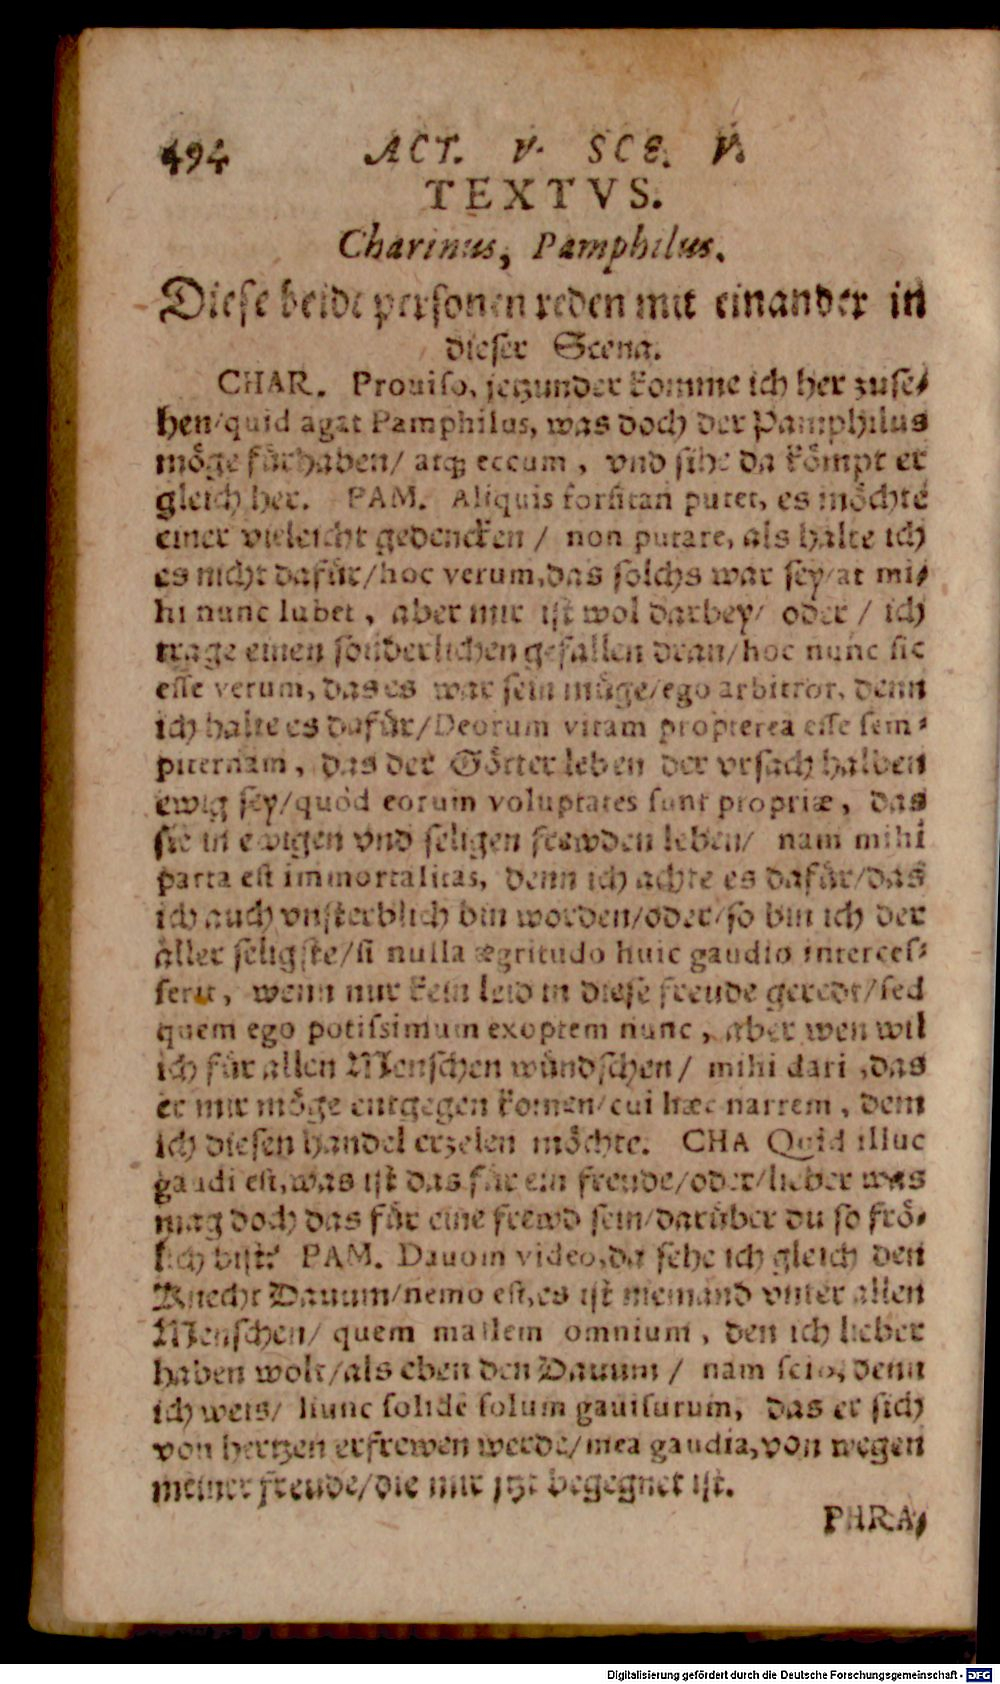 494 ACT. V. SCE. V.
TEXTVS.
Charinus, Pamphilus.
Diese beide personen reden mit einander in
dieser Scena.
CHAR. Prouiso, jetzunder komme ich her zuse⸗
hen/quid agat Pamphilus, was doch der Pamphilus
möge fürhaben/ atq; eccum, vnd sihe da kömpt er
gleich her. PAM. Aliquis forsitan putet, es möchte
einer vieleicht gedencken/ non putare, als halte ich
es nicht dafür/hoc verum, das solchs war sey/at mi⸗
hi nunc lubet, aber mir ist wol darbey/ oder/ ich
trage einen sonderlichen gefallen dran/hoc nunc sic
esse verum, das es war sein müge/ego arbitror, denn
ich halte es dafür/Deorum vitam propterea esse sem⸗
piternam, das der Götter leben der vrsach halben
ewig sey/quòd eorum voluptates sunt propriæ, das
sie in ewigen vnd seligen frewden leben/ nam mihi
parta est immortalitas, denn ich achte es dafür/das
ich auch vnsterblich bin worden/oder/so bin ich der
aller seligste/si nulla ægritudo huic gaudio interces⸗
serit, wenn nur kein leid in diese freude geredt/sed
quem ego potissimum exoptem nunc, aber wen wil
ich für allen Menschen wündschen/ mihi dari, das
er mir möge entgegen komen/cui hæc narrem, dem
ich diesen handel erzelen möchte. CHA Quid illuc
gaudi est, was ist das für ein freude/oder/lieber was
mag doch das für eine frewd sein/darüber du so frö⸗
lich bist? PAM. Dauom video, da sehe ich gleich den
Knecht Dauum/nemo est, es ist niemand vnter allen
Menschen/ quem mallem omnium, den ich lieber
haben wolt/als eben den Dauum/ nam scio, denn
ich weis/ hunc solidè solum gauisurum, das er sich
von hertzen erfrewen werde/mea gaudia, von wegen
meiner freude/die mir jtzt begegnet ist.
PHRA⸗
Digitalisierung gefördert durch die Deutsche Forschungsgemeinschaft - DFG